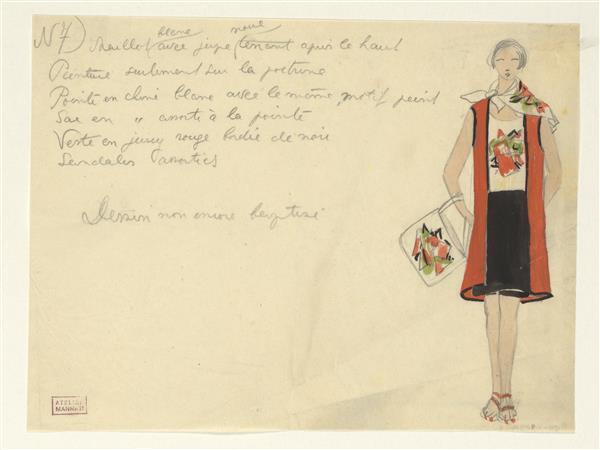 N 7) Maillot blanc avec jupe noire tenant après le haut
Peinture seulement sur la poitrine
Pointe en chiné blanc avec le même motif peint
Sac en " assorti à la pointe
Veste en jersey rouge bordée de noir
Sandales assorties
Dessin non encore baptisé
ATELIER
MANNATI